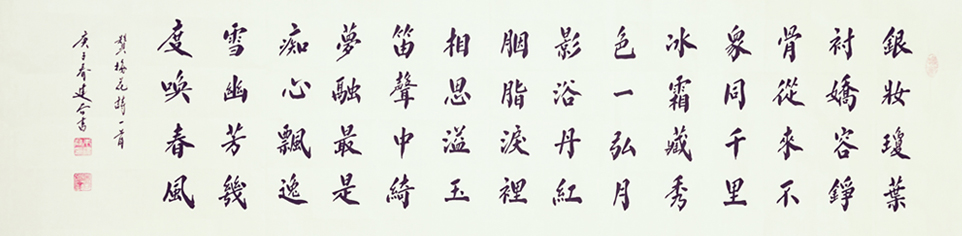 銀妝瓊葉
襯嬌容錚
骨從來不
衆同千里
冰霜藏秀
色一弘月
影浴丹紅
胭脂淚裡
相思溢玉
笛聲中綺
夢融最是
痴心飄逸
雪幽芳幾
度喚春風
梅花 一首
庚子春建 書